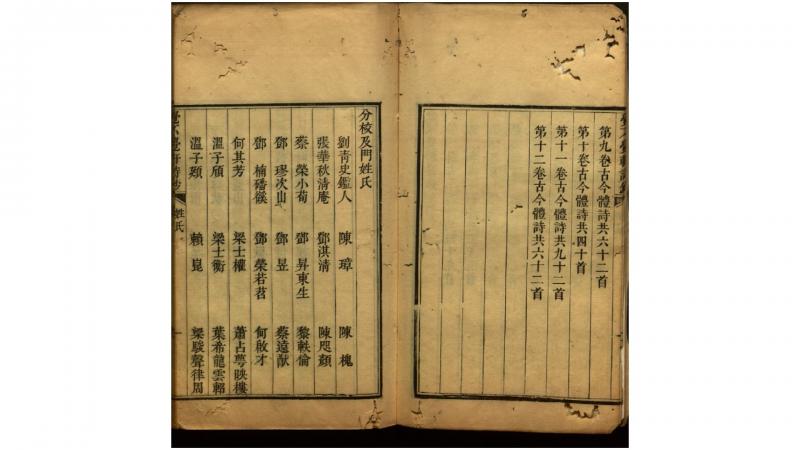 第九卷古今體詩共六十二首
第十卷古今體詩共四十首
第十一卷古今體詩共九十二首
第十二卷古今體詩共六十二首
分校及門姓氏
劉靑史鑑人 陳璋 陳槐
張華秋清庵 鄧淇清 陳咫顏
蔡榮小荀 鄧昇東生 黎軼倫
鄧瑹次山 鄧昱 蔡遠猷
鄧楠 鄧榮若茗 何啟才
何其芳 梁士權 蕭占萼映樓
溫子頎 梁士衡 葉希龍雲輧
溫子顥 賴崑 梁駿聲律周
姓氏
一